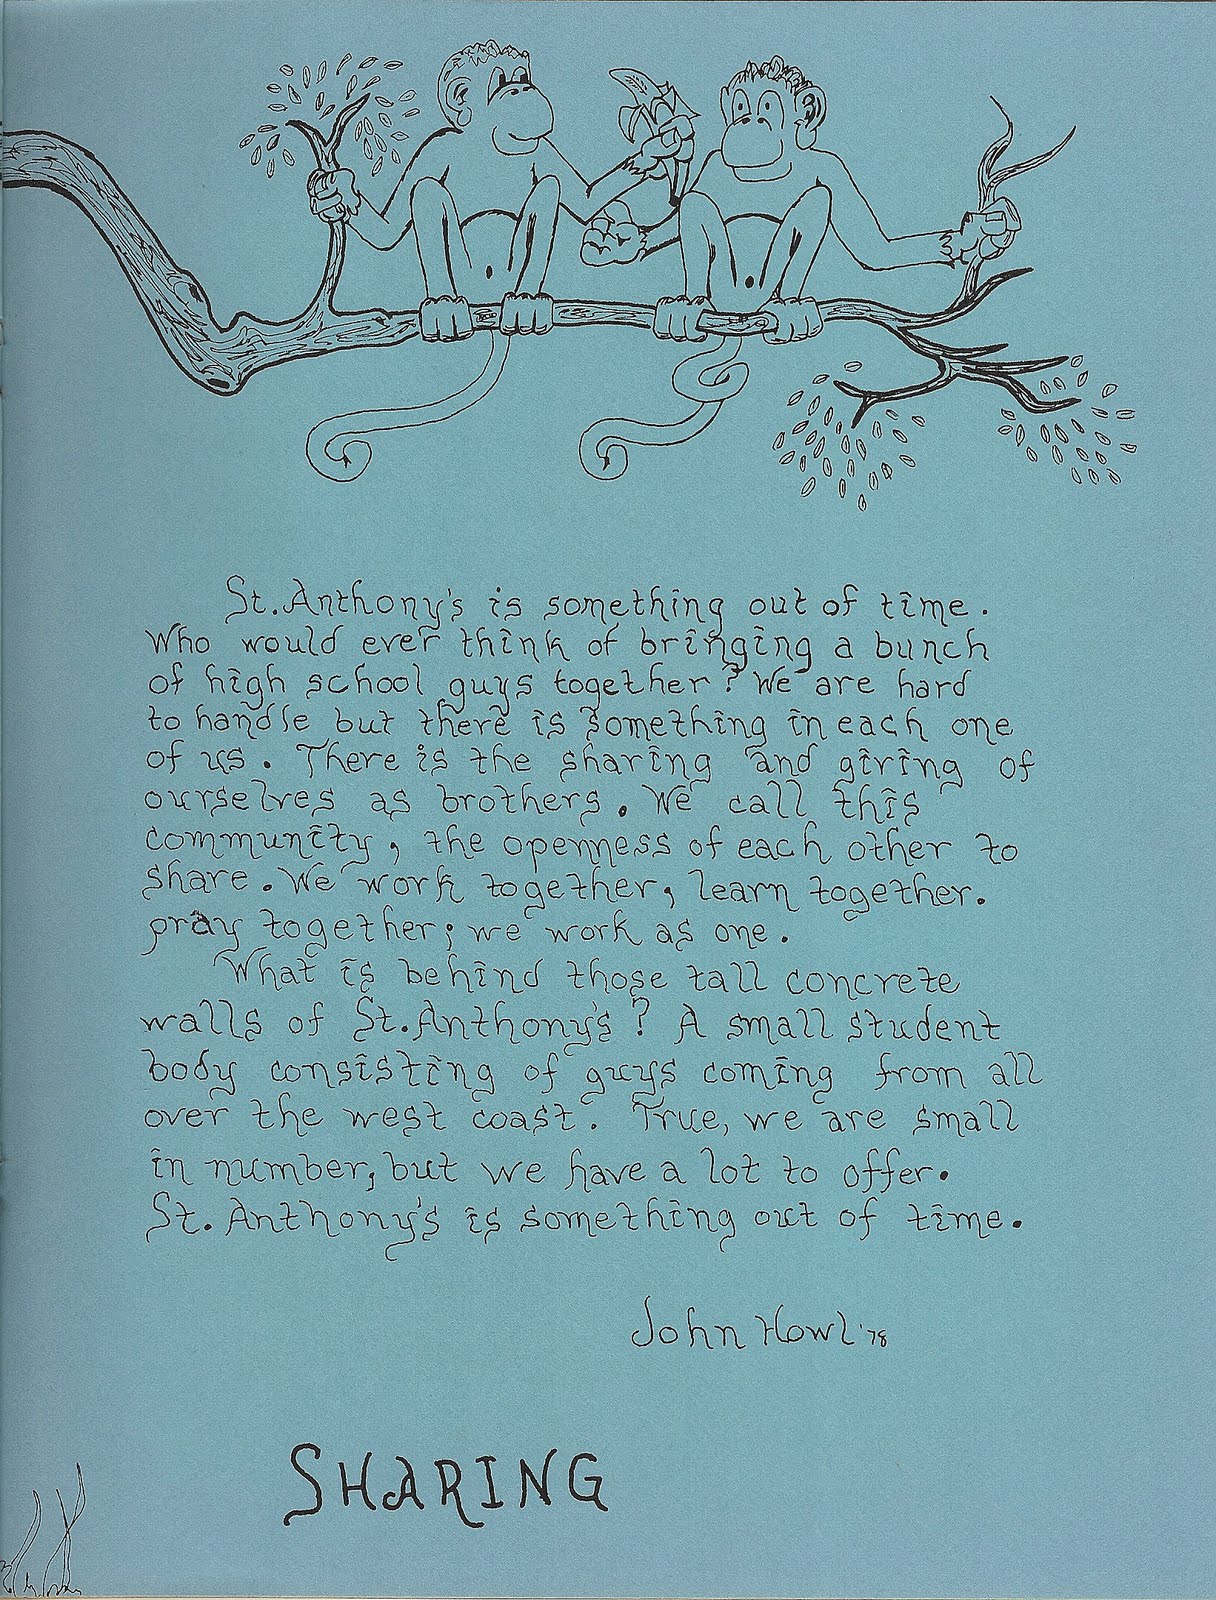 St. Anthony's is something out of time.
Who would ever think of bringing a bunch
of high school guys together? We are hard
to handle but there is something in each one
of us. There is the sharing and giving of
ourselves as brothers. We call this
community, the openness of each other to
share. We work together, learn together.
pray together; we work as one.
What is behind those tall concrete
walls of St. Anthony's? A small student
body consisting of guys coming from all
over the west coast. True, we are small
in number, but we have a lot to offer.
St. Anthony's is something out of time.
John Howl '78
SHARING